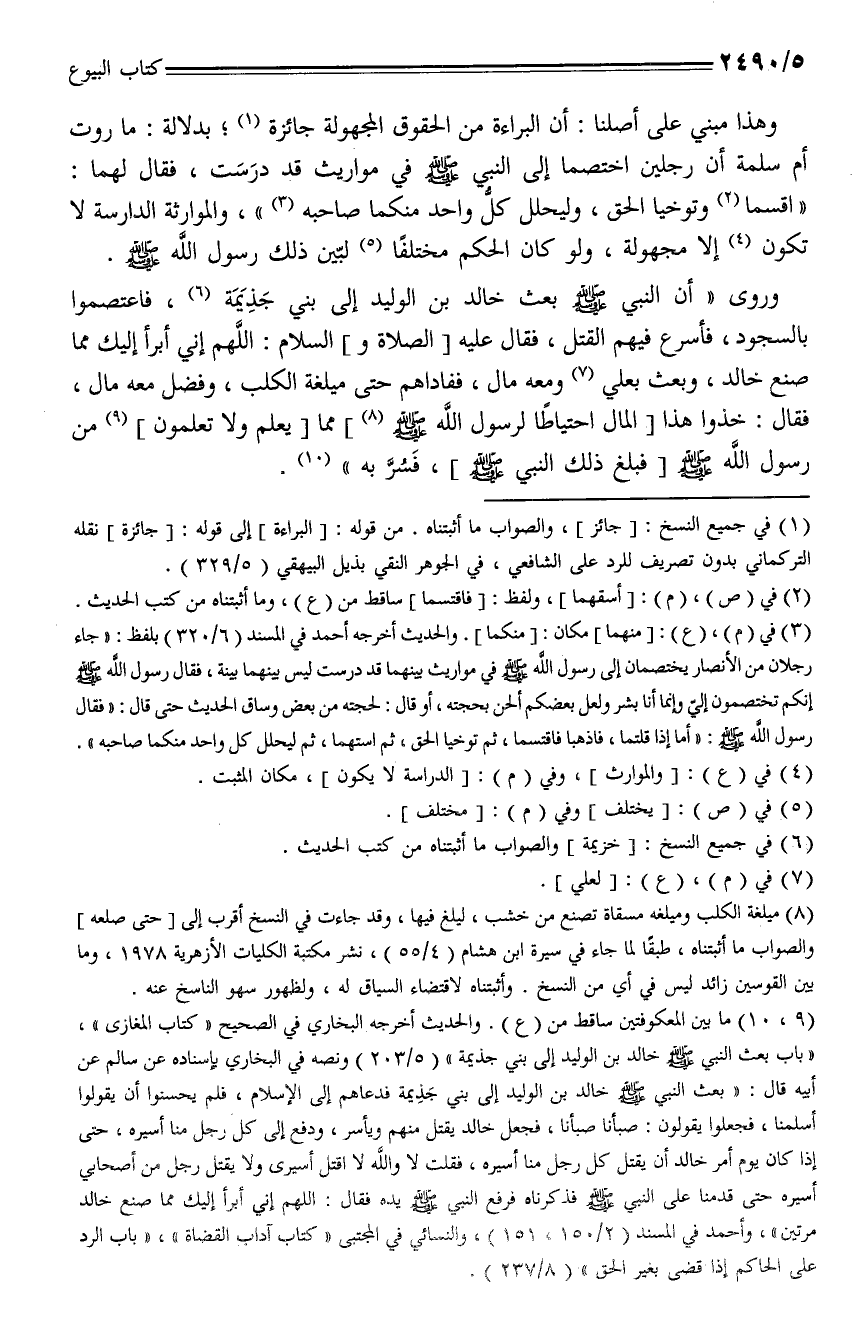 ٢٤٩٠/٥ كتاب البيوع
وهذا مبني على أصلنا : أن البراءة من الحقوق المجهولة جائزة (١) ؛ بدلالة : ما روت
أم سلمة أن رجلين اختصما إلى النبي ﷺ في مواريث قد درَسَت ، فقال لهما :
« اقسما (٢) وتوخيا الحق ، وليحلل كلُّ واحد منكما صاحبه (٣) » ، والموارثة الدارسة لا
تكون (٤) إلا مجهولة ، ولو كان الحكم مختلفًا (٥) لبّين ذلك رسول اللَّه ﷺ .
وروى « أن النبي ﷺ بعث خالد بن الوليد إلى بني جَذِيَمَة (٦) ، فاعتصموا
بالسجود ، فأسرع فيهم القتل ، فقال عليه [ الصلاة و ] السلام : اللَّهم إني أبرأ إليك مما
صنع خالد ، وبعث بعلي (٧) ومعه مال ، ففاداهم حتى ميلغة الكلب ، وفضل معه مال ،
فقال : خذوا هذا [ المال احتياطًا لرسول اللَّه ﷺ (٨) ] مما [ يعلم ولا تعلمون ] (٩) من
رسول اللَّه ﷺ [ فبلغ ذلك النبي ﷺ ] ، فَسُرَّ به » (١٠) .
(١) في جميع النسخ : [ جائز ] ، والصواب ما أثبتناه . من قوله : [ البراءة ] إلى قوله : [ جائزة ] نقله
التركماني بدون تصريف للرد على الشافعي ، في الجوهر النقي بذيل البيهقي ( ٣٢٩/٥ ) .
(٢) في ( ص ) ، ( م ) : [ أسقهما ] ، ولفظ : [ فاقتسما ] ساقط من ( ع ) ، وما أثبتناه من كتب الحديث .
(٣) في ( م ) ، ( ع ) : [ منهما ] مكان : [ منكما ] . والحديث أخرجه أحمد في المسند ( ٣٢٠/٦ ) بلفظ : « جاء
رجلان من الأنصار يختصمان إلى رسول اللَّه ﷺ في مواريث بينهما قد درست ليس بينهما بينة ، فقال رسول اللَّه ﷺ
إنكم تختصمون إليّ وإنما أنا بشر ولعل بعضكم ألحن بحجته ، أو قال : لحجته من بعض وساق الحديث حتى قال : « فقال
رسول اللَّه ﷺ : « أما إذا قلتما ، فاذهبا فاقتسما ، ثم توخيا الحق ، ثم استهما ، ثم ليحلل كل واحد منكما صاحبه » .
(٤) في ( ع ) : [ والموارث ] ، وفي ( م ) : [ الدراسة لا يكون ] ، مكان المثبت .
(٥) في ( ص ) : [ يختلف ] وفي ( م ) : [ مختلف ] .
(٦) في جميع النسخ : [ خزيمة ] والصواب ما أثبتناه من كتب الحديث .
(٧) في ( م ) ، ( ع ) : [ لعلي ] .
(٨) ميلغة الكلب وميلغه مسقاة تصنع من خشب ، ليلغ فيها ، وقد جاءت في النسخ أقرب إلى [ حتى صلعه ]
والصواب ما أثبتناه ، طبقًا لما جاء في سيرة ابن هشام ( ٥٥/٤ ) ، نشر مكتبة الكليات الأزهرية ١٩٧٨ ، وما
بين القوسين زائد ليس في أي من النسخ . وأثبتناه لاقتضاء السياق له ، ولظهور سهو الناسخ عنه .
(٩ ، ١٠) ما بين المعكوفتين ساقط من ( ع ) . والحديث أخرجه البخاري في الصحيح « كتاب المغازى » ،
« باب بعث النبي ﷺ خالد بن الوليد إلى بني جذيمة » ( ٢٠٣/٥ ) ونصه في البخاري بإسناده عن سالم عن
أبيه قال : « بعث النبي ﷺ خالد بن الوليد إلى بني جَذِيمَة فدعاهم إلى الإسلام ، فلم يحسنوا أن يقولوا
أسلمنا ، فجعلوا يقولون : صبأنا صبأنا ، فجعل خالد يقتل منهم ويأسر ، ودفع إلى كل رجل منا أسيره ، حتى
إذا كان يوم أمر خالد أن يقتل كل رجل منا أسيره ، فقلت لا واللَّه لا اقتل أسيرى ولا يقتل رجل من أصحابي
أسيره حتى قدمنا على النبي ﷺ فذكرناه فرفع النبي ﷺ يده فقال : اللهم إني أبرأ إليك مما صنع خالد
مرتين » ، وأحمد في المسند ( ١٥٠/٢ ، ١٥١ ) ، والنسائي في المجتبى « كتاب آداب القضاة » ، « باب الرد
على الحاكم إذا قضى بغير الحق » ( ٢٣٧/٨ ) .